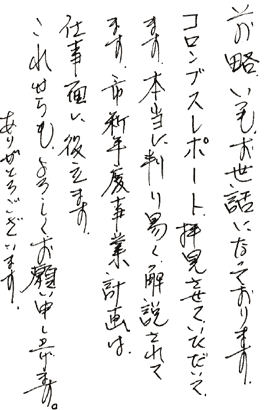 前略 いつもお世話になっております。
コロンブスレポート、拝見させていただいて
ます。本当に判り易く解説されて
ます。市新年度事業計画は、
仕事面に役立ます。
これからも、よろしくお願い申し上げます。
ありがとうございます。